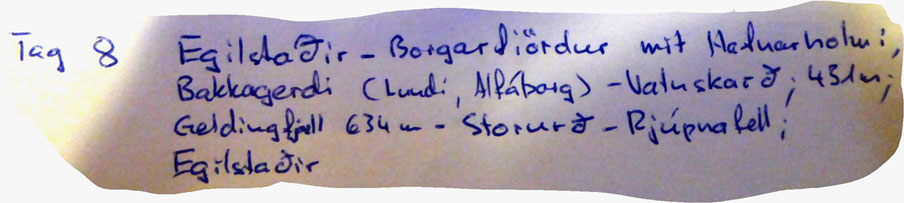 Tag 8 Egilstaðir - Borgarfiördur mit Hafnarholmi,
Bakkagerdi (Lundi, Alfáborg) - Vatnskarð, 431m;
Geldingfjell 634 m - Storurð - Rjúpnafell;
Egilstaðir